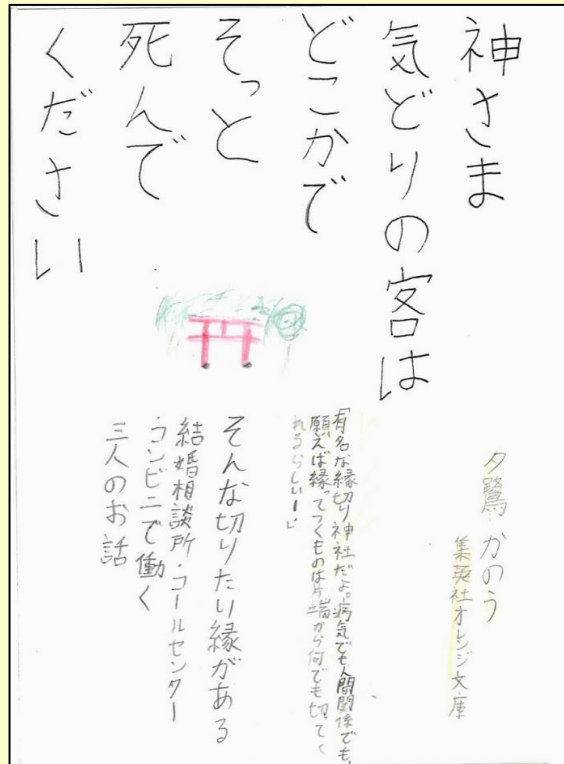 神さま
気どりの客は
どこかで
そっと
死んで
ください
夕鷺かのう
集英社オレンジ文庫
「有名な縁切り神社だよ。病気でも人間関係でも、
願えば縁ってつくものは片端から何でも切ってく
れるらしいー」
そんな切りたい縁がある
結婚相談所・コールセンター
・コンビニで働く
三人のお話